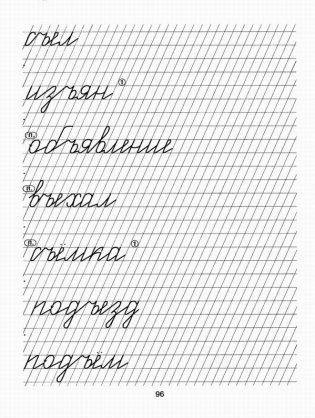 съел
изъян ①
п. объявление
п. въехал
п. съёмка ①
подъезд
подъём
96